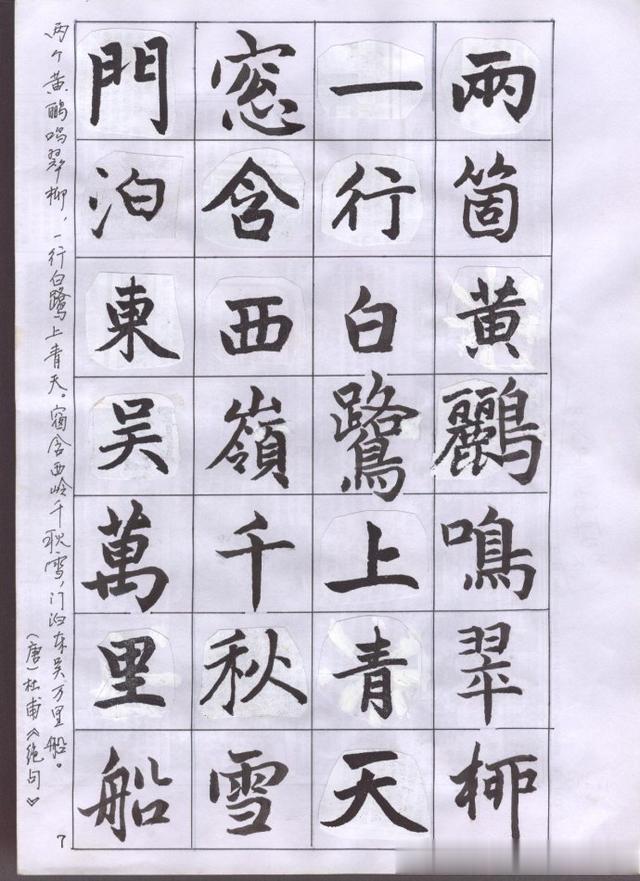 兩箇黄鸝鳴翠柳
一行白鷺上青天
窓含西嶺千秋雪
門泊東吴萬里船
两个黄鹂鸣翠柳，一行白鹭上青天。窗含西岭千秋雪，门泊东吴万里船。
(唐)杜甫《绝句》
7